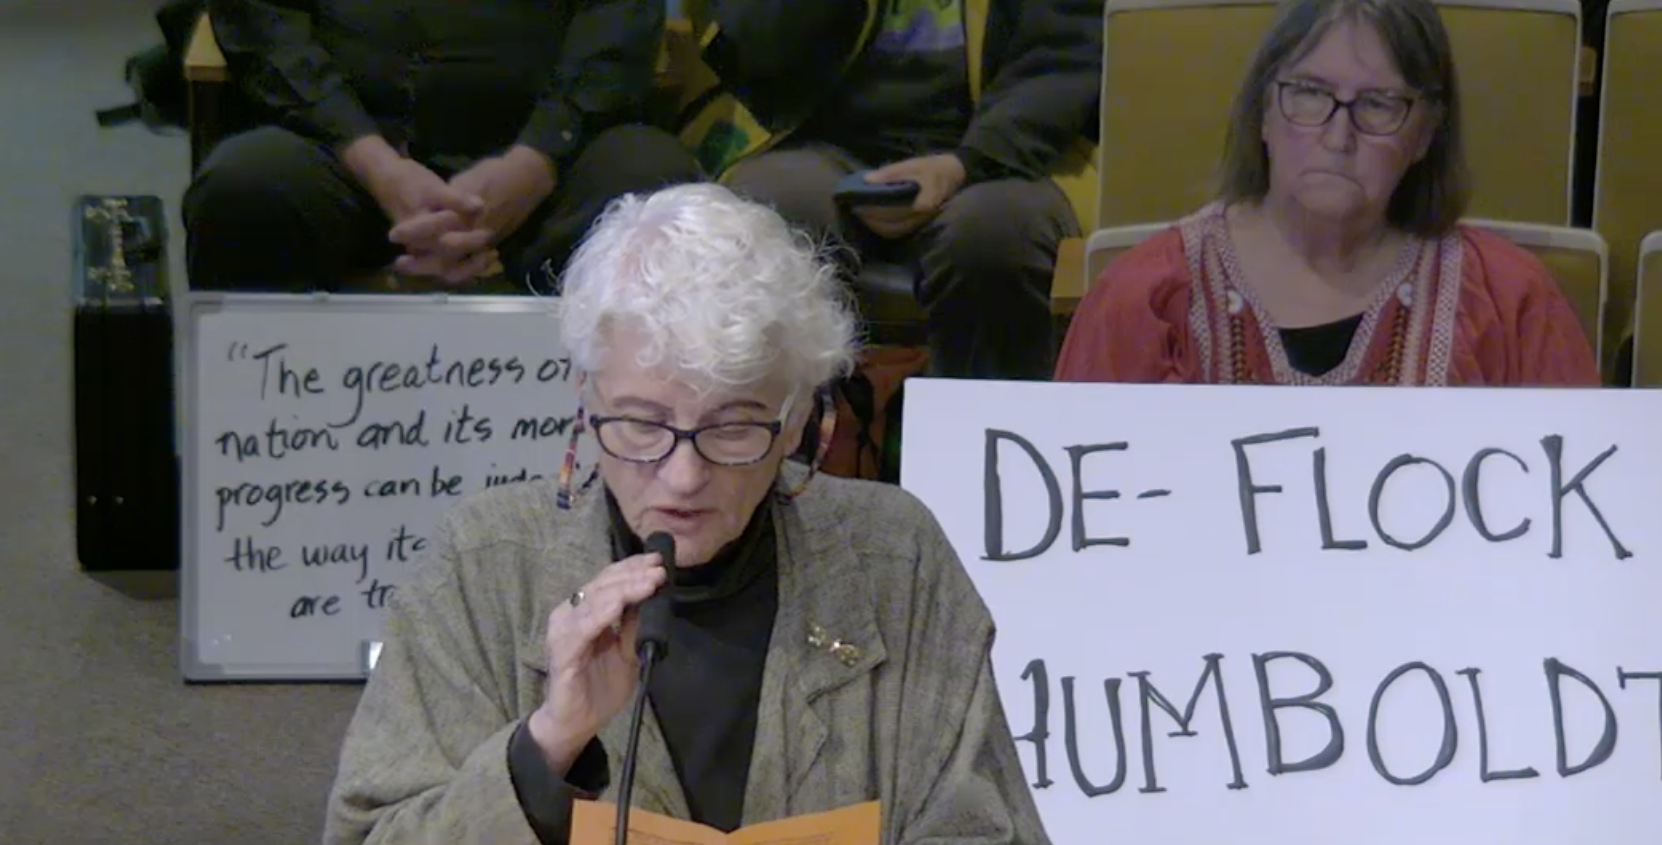 "The greatness
nation and its
progress can be
the way
are
DE- FLOCK
HUMBOLDT